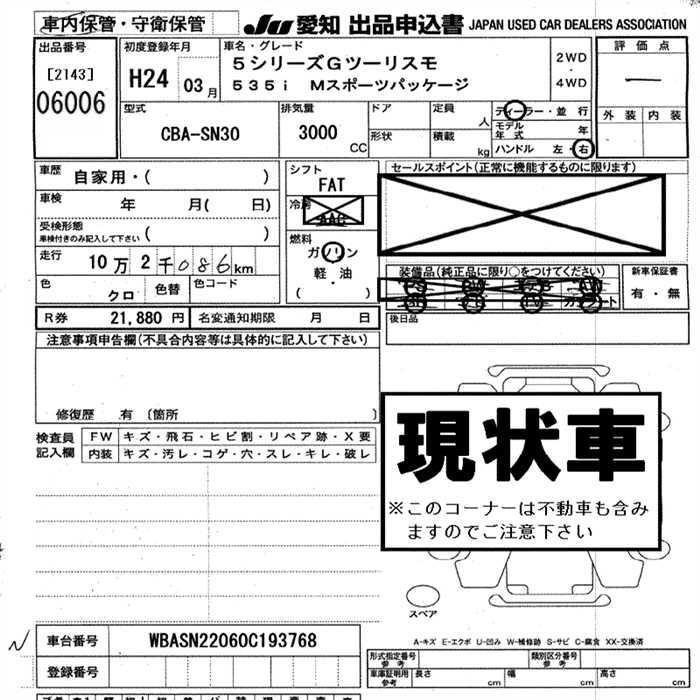 車内保管・守衛保管
JU 愛知 出品申込書 JAPAN USED CAR DEALERS ASSOCIATION
出品番号
[2143]
06006
初度登録年月
H24 03月
車名・グレード
5シリーズGツーリスモ
535i Mスポーツパッケージ
2WD
・
4WD
評価点
外装 内装
型式
CBA-SN30
排気量
3000
CC
ドア
形状
定員
人
積載
kg
ディーラー・並行
モデル年式 年
ハンドル 左・右
車歴 自家用・( )
車検 年 月( 日)
受検形態
車検付きのみ記入して下さい ( )
走行 10万2千086km
色 クロ 色替 色コード
シフト
FAT
冷房
AAC
燃料
ガソリン
軽・油
( )
セールスポイント(正常に機能するものに限ります)
装備品(純正品に限り○をつけてください)
新車保証書
有・無
R券 21,880円 名変通知期限 月 日
後日品
注意事項申告欄(不具合内容等は具体的に記入して下さい)
修復歴 有 〔箇所 〕
検査員記入欄
FW キズ・飛石・ヒビ割・リペア跡・X要
内装 キズ・汚レ・コゲ・穴・スレ・キレ・破レ
現状車
※このコーナーは不動車も含み
ますのでご注意下さい
スペア
A-キズ E-エクボ U-凹み W-補修跡 S-サビ C-腐食 XX-交換済
N
車台番号 WBASN22060C193768
登録番号
形式指定番号
参考
類別区分番号
参考
車庫証明用
参考
長さ cm 幅 cm 高さ cm